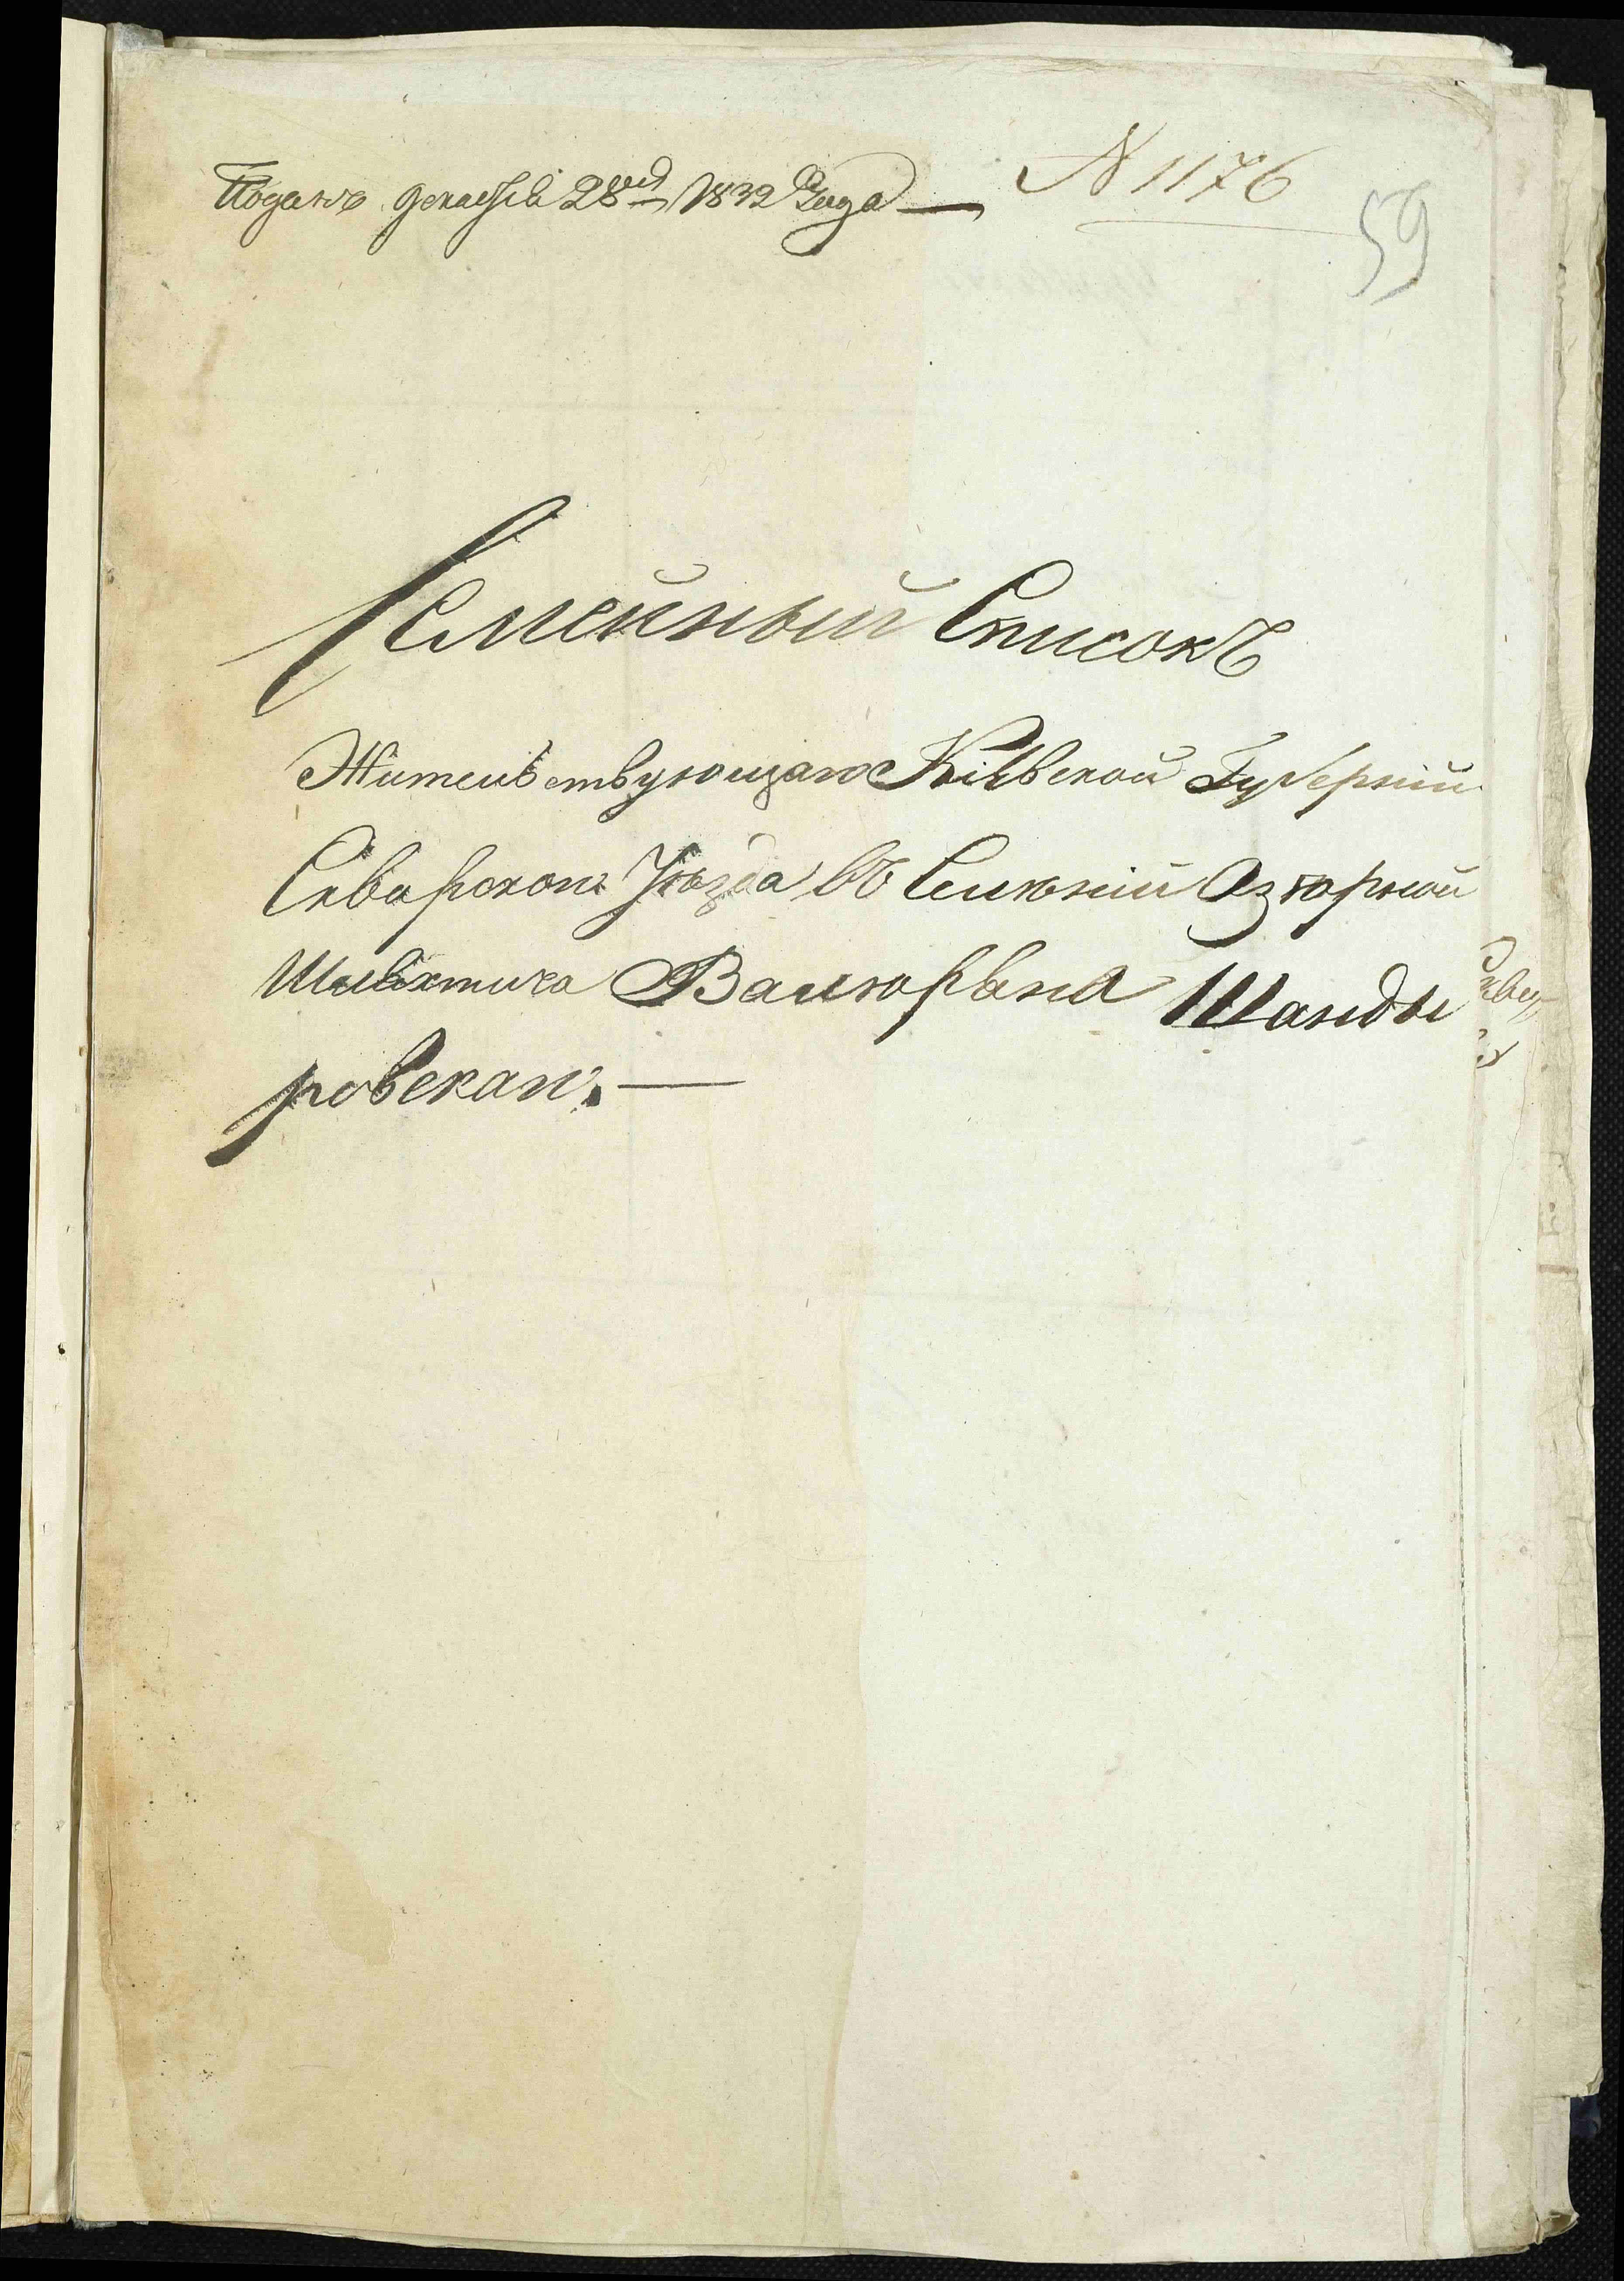 Поданъ декабря 28го 1832 Года — N 1176
59
Семейный Списокъ
Жительствующаго Кіевской Губерніи
Сквирского Уѣзда въ Селѣніи Озѣрной
Шляхтича Валюрѣяна Шанды
ровскаго. —